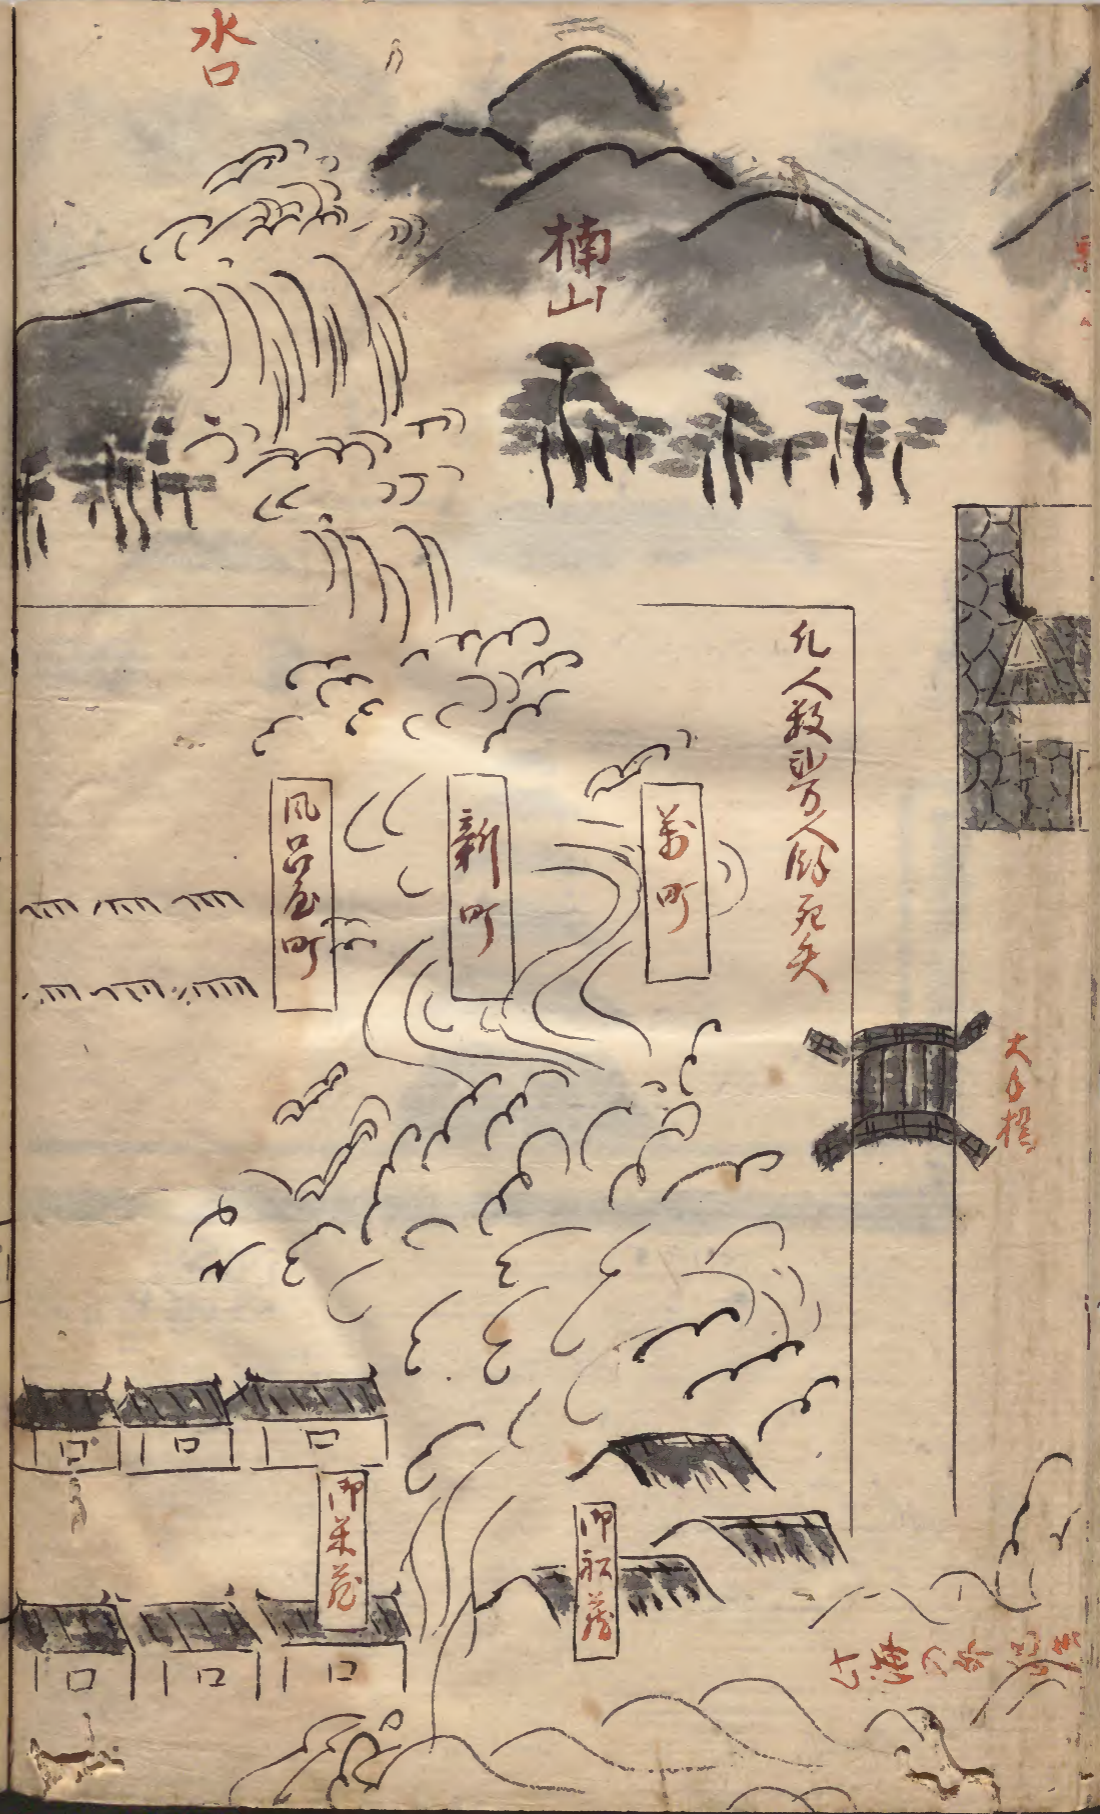 水口
楠山
凡人数弐万人余死失
萬町
新町
風呂屋町
大手橋
御米蔵
御船蔵